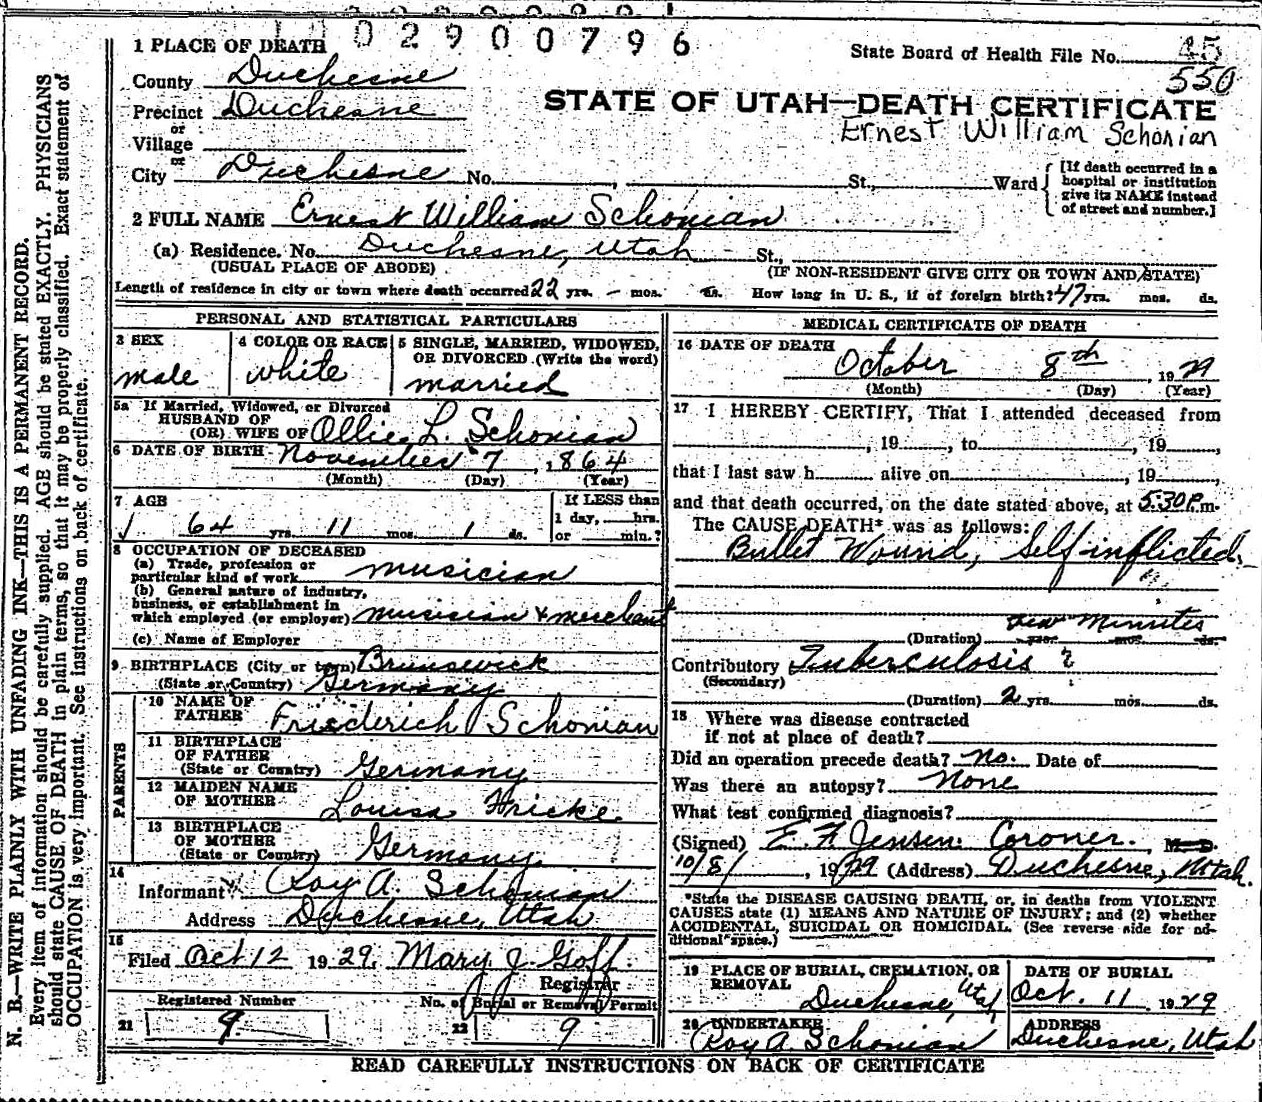 1 0 2 9 0 0 7 9 6
State Board of Health File No. 45
550
1 PLACE OF DEATH
County Duchesne
Precinct Duchesne
or
Village
or
City Duchesne No. , St., Ward
STATE OF UTAH—DEATH CERTIFICATE
Ernest William Schonian
[If death occurred in a
hospital or institution
give its NAME instead
of street and number.]
2 FULL NAME Ernest William Schonian
(a) Residence. No. Duchesne, Utah St.,
(USUAL PLACE OF ABODE) (IF NON-RESIDENT GIVE CITY OR TOWN AND STATE)
Length of residence in city or town where death occurred 22 yrs. - mos. ds. How long in U. S., if of foreign birth? 47 yrs. mos. ds.
PERSONAL AND STATISTICAL PARTICULARS
3 SEX
male
4 COLOR OR RACE
white
5 SINGLE, MARRIED, WIDOWED,
OR DIVORCED (Write the word)
married
5a If Married, Widowed, or Divorced
HUSBAND OF
(OR) WIFE OF Ollie L. Schonian
6 DATE OF BIRTH November 7, 1864
(Month) (Day) (Year)
7 AGE
64 yrs. 11 mos. 1 ds.
If LESS than
1 day, hrs.
or min.?
8 OCCUPATION OF DECEASED
(a) Trade, profession or
particular kind of work musician
(b) General nature of industry,
business, or establishment in
which employed (or employer) musician & merchant
(c) Name of Employer
9 BIRTHPLACE (City or town) Brunswick
(State or Country) Germany
PARENTS
10 NAME OF
FATHER Friederich Schonian
11 BIRTHPLACE
OF FATHER
(State or Country) Germany
12 MAIDEN NAME
OF MOTHER Louisa Hricke
13 BIRTHPLACE
OF MOTHER
(State or Country) Germany
14
Informant Roy A. Schonian
Address Duchesne, Utah
15
Filed Oct 12 1929. Mary J Goff.
Registrar
Registered Number
21 9.
No. of Burial or Removal Permit
22 9
MEDICAL CERTIFICATE OF DEATH
16 DATE OF DEATH
October 8th, 1929
(Month) (Day) (Year)
17 I HEREBY CERTIFY, That I attended deceased from
, 19 , to , 19 ,
that I last saw h alive on , 19
and that death occurred, on the date stated above, at 5:30 P.m.
The CAUSE DEATH* was as follows:
Bullet Wound, Self inflicted,
few minutes
(Duration) yrs. mos. ds.
Contributory Tuberculosis ?
(Secondary)
(Duration) 2 yrs. mos. ds.
18 Where was disease contracted
if not at place of death?
Did an operation precede death? no. Date of
Was there an autopsy? None
What test confirmed diagnosis?
(Signed) E. H. Jensen Coroner. M. D.
10/8/, 1929 (Address) Duchesne, Utah.
*State the DISEASE CAUSING DEATH, or, in deaths from VIOLENT
CAUSES state (1) MEANS AND NATURE OF INJURY; and (2) whether
ACCIDENTAL, SUICIDAL OR HOMICIDAL. (See reverse side for ad-
ditional space.)
19 PLACE OF BURIAL, CREMATION, OR
REMOVAL
Duchesne, Utah
DATE OF BURIAL
Oct. 11 1929
20 UNDERTAKER
Roy A Schonian
ADDRESS
Duchesne, Utah
READ CAREFULLY INSTRUCTIONS ON BACK OF CERTIFICATE
N. B.—WRITE PLAINLY WITH UNFADING INK—THIS IS A PERMANENT RECORD.
Every item of information should be carefully supplied. AGE should be stated EXACTLY. PHYSICIANS
should state CAUSE OF DEATH in plain terms, so that it may be properly classified. Exact statement of
OCCUPATION is very important. See instructions on back of certificate.